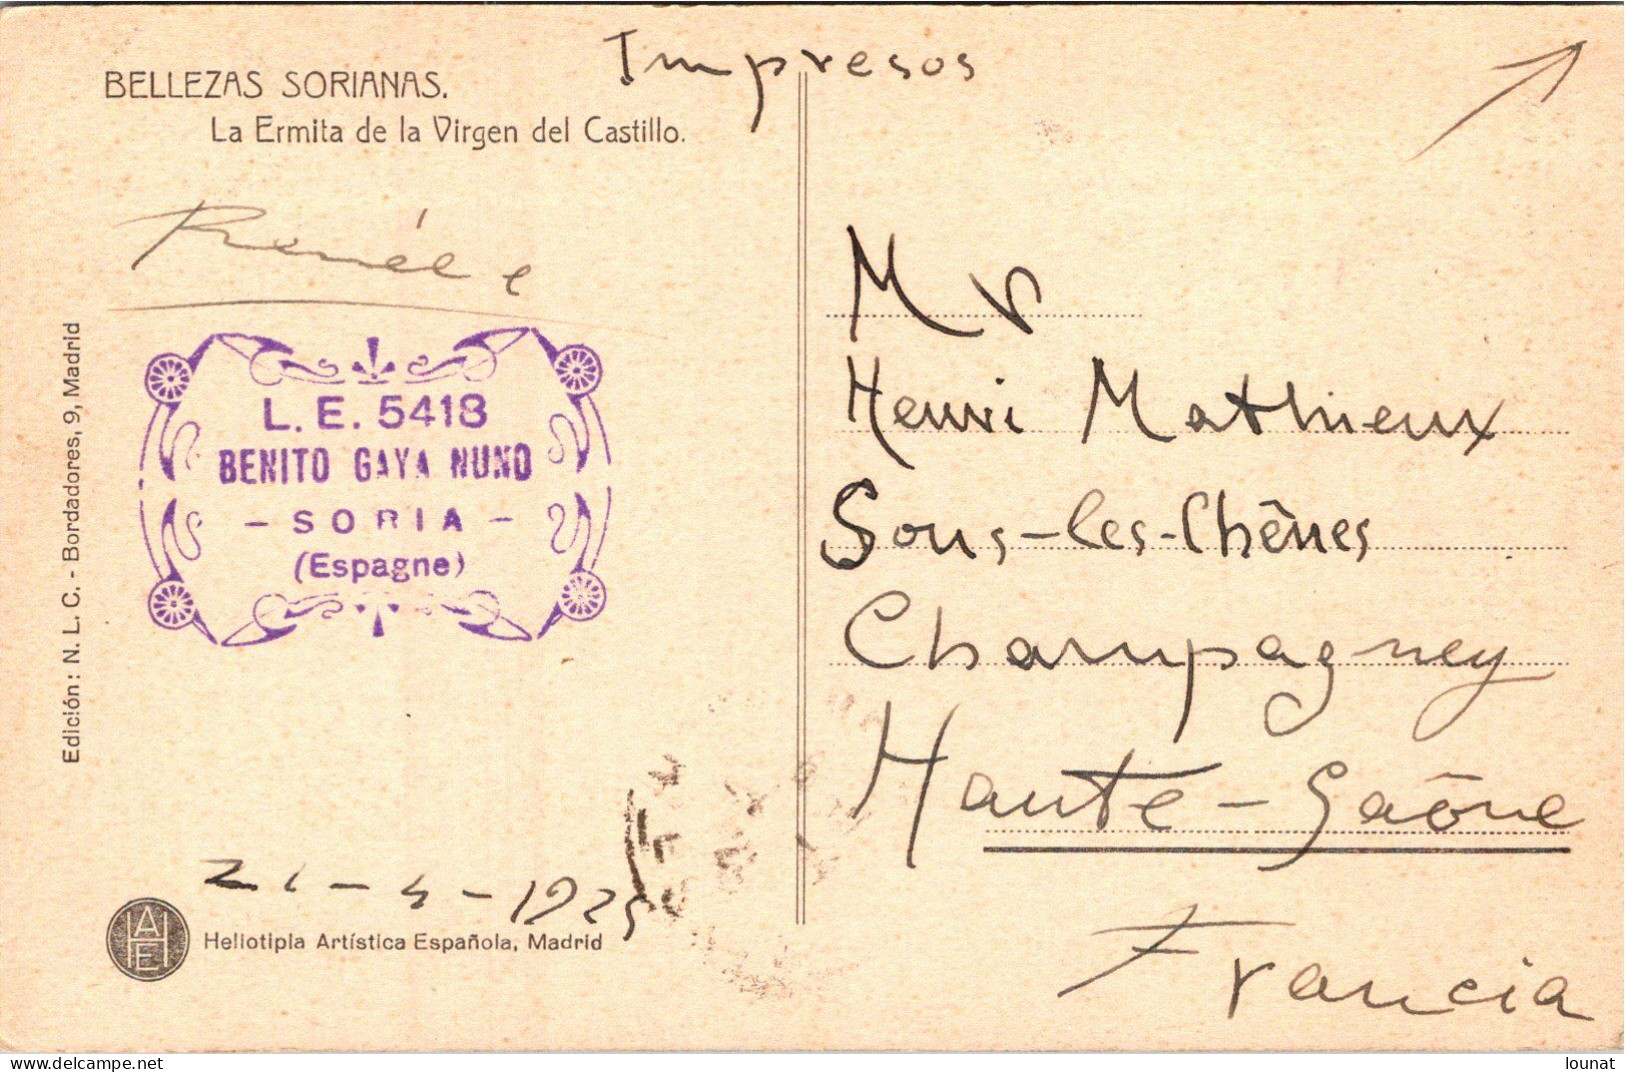 Impresos
BELLEZAS SORIANAS.
La Ermita de la Virgen del Castillo.
L. E. 5418
BENITO GAYA NUNO
- SORIA -
(Espagne)
Edición: N. L. C. - Bordadores, 9, Madrid
21-4-1925
AHE
Heliotipia Artística Española, Madrid
Mr
Henri Mathieux
Sous-les-Chênes
Champagney
Haute-Saône
Francia
www.delcampe.net
lounat